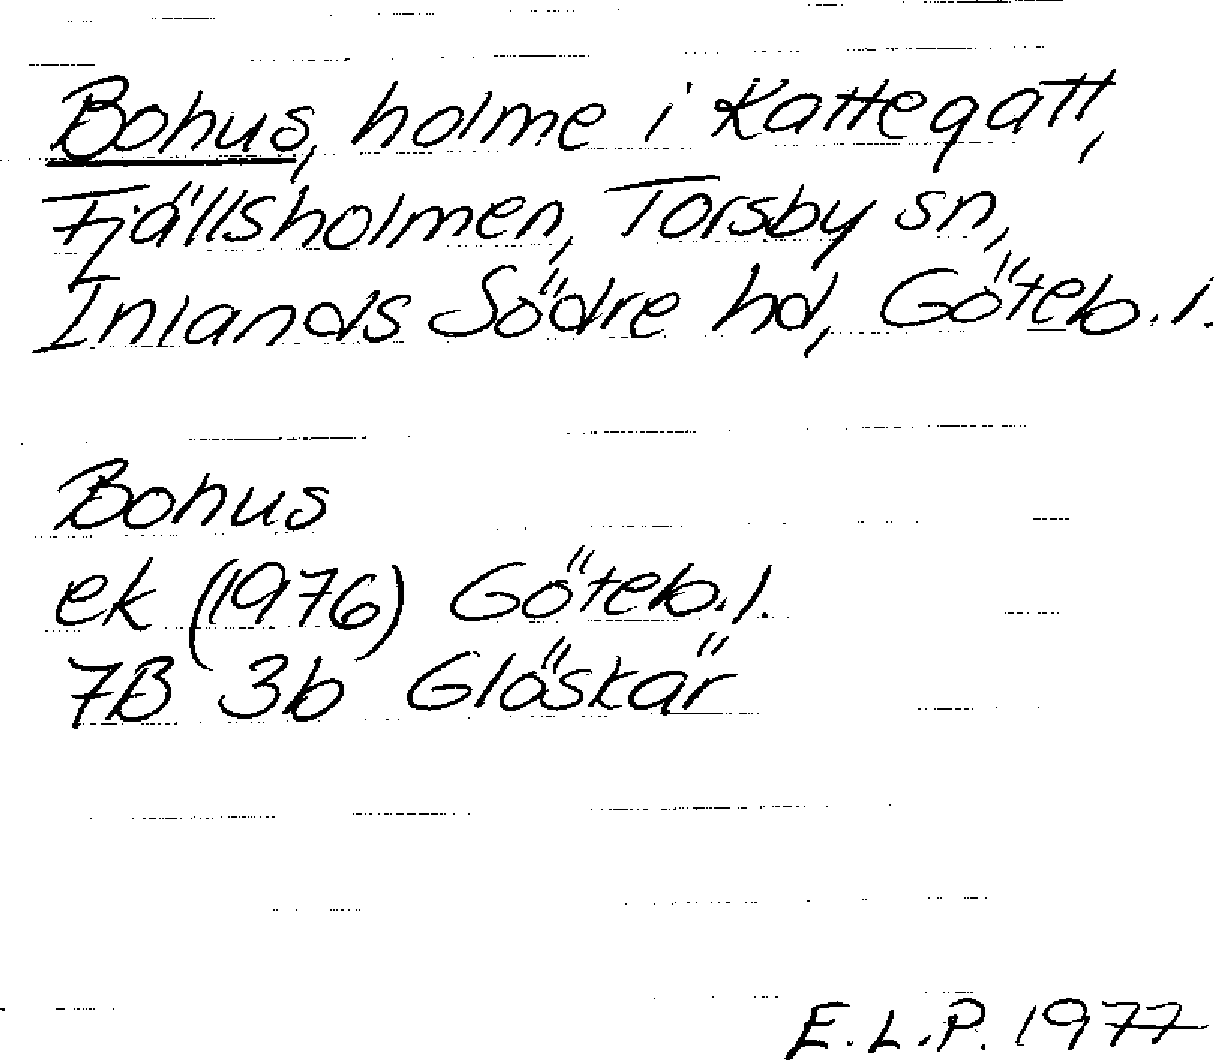 Bohus, holme i Kattegatt,
Fjällsholmen, Torsby sn,
Inlands Södre hd, Göteb.l.
Bohus
ek (1976) Göteb.l.
7B 3b Glöskär
E.L.P. 1977